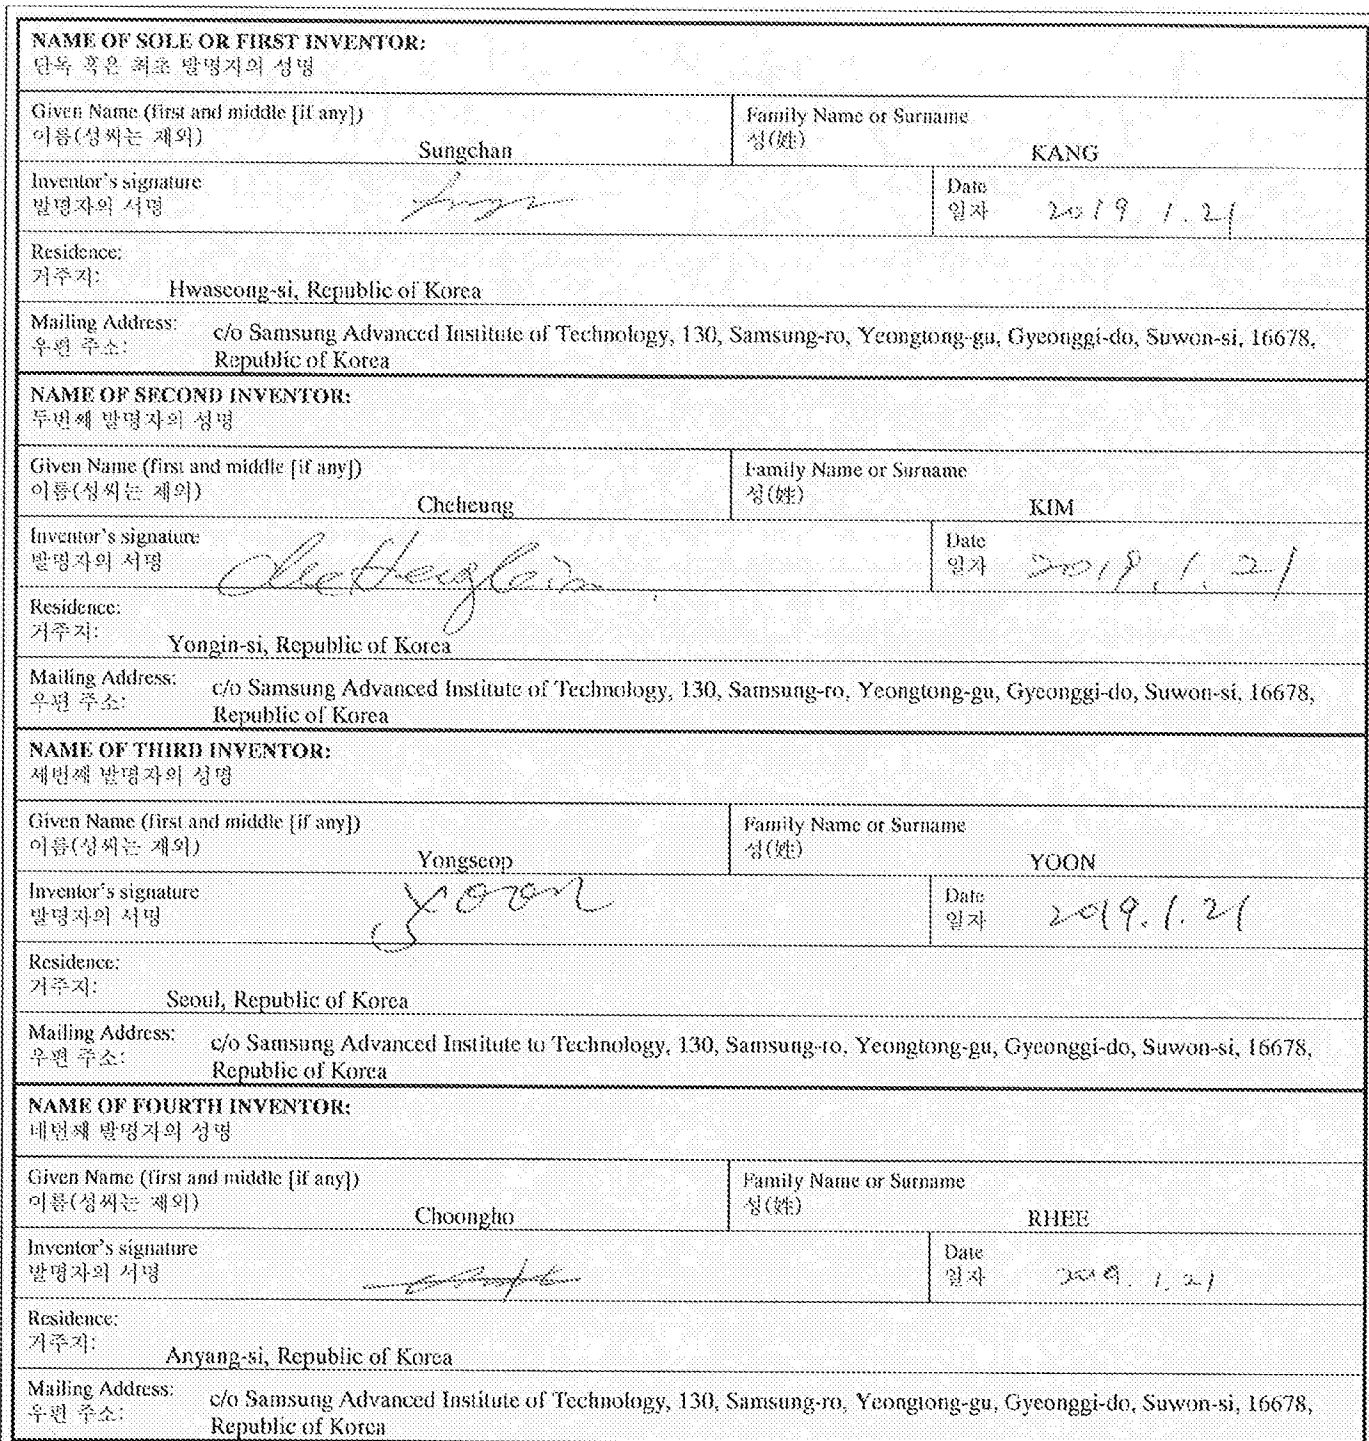 NAME OF SOLE OR FIRST INVENTOR:
단독 혹은 최초 발명자의 성명
Given Name (first and middle [if any])
이름(성씨는 제외)
Sungchan
Family Name or Surname
성(姓)
KANG
Inventor's signature
발명자의 서명
Date
일자
2019. 1. 21
Residence:
거주지:
Hwaseong-si, Republic of Korea
Mailing Address:
우편 주소:
c/o Samsung Advanced Institute of Technology, 130, Samsung-ro, Yeongtong-gu, Gyeonggi-do, Suwon-si, 16678,
Republic of Korea
NAME OF SECOND INVENTOR:
두번째 발명자의 성명
Given Name (first and middle [if any])
이름(성씨는 제외)
Cheheung
Family Name or Surname
성(姓)
KIM
Inventor's signature
발명자의 서명
Date
일자
2019. 1. 21
Residence:
거주지:
Yongin-si, Republic of Korea
Mailing Address:
우편 주소:
c/o Samsung Advanced Institute of Technology, 130, Samsung-ro, Yeongtong-gu, Gyeonggi-do, Suwon-si, 16678,
Republic of Korea
NAME OF THIRD INVENTOR:
세번째 발명자의 성명
Given Name (first and middle [if any])
이름(성씨는 제외)
Yongseop
Family Name or Surname
성(姓)
YOON
Inventor's signature
발명자의 서명
yoon
Date
일자
2019. 1. 21
Residence:
거주지:
Seoul, Republic of Korea
Mailing Address:
우편 주소:
c/o Samsung Advanced Institute to Technology, 130, Samsung-ro, Yeongtong-gu, Gyeonggi-do, Suwon-si, 16678,
Republic of Korea
NAME OF FOURTH INVENTOR:
네번째 발명자의 성명
Given Name (first and middle [if any])
이름(성씨는 제외)
Choongho
Family Name or Surname
성(姓)
RHEE
Inventor's signature
발명자의 서명
Date
일자
2019. 1. 21
Residence:
거주지:
Anyang-si, Republic of Korea
Mailing Address:
우편 주소:
c/o Samsung Advanced Institute of Technology, 130, Samsung-ro, Yeongtong-gu, Gyeonggi-do, Suwon-si, 16678,
Republic of Korea